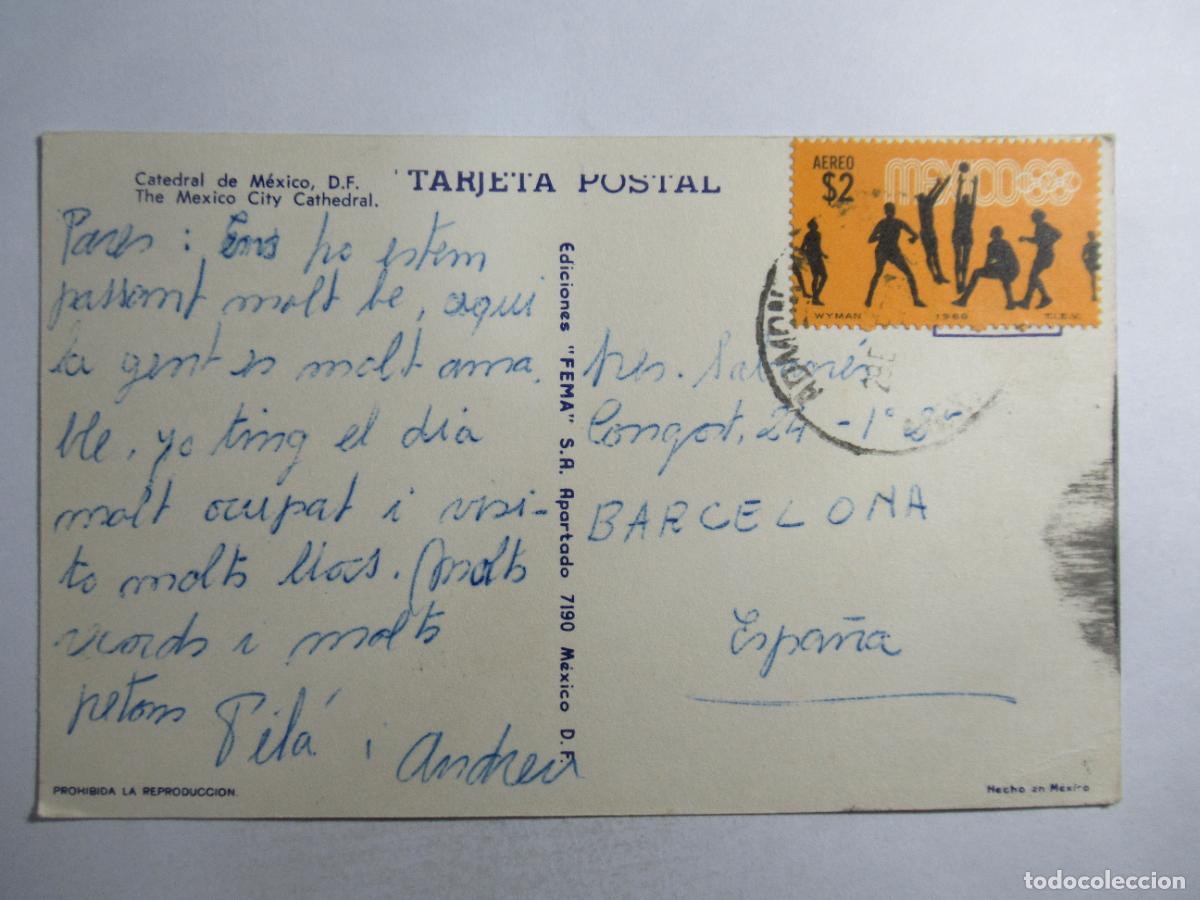 Catedral de México, D.F.
The Mexico City Cathedral.
TARJETA POSTAL
Pares: Ens ho estem
passant molt be, aqui
la gent es molt ama
ble, yo ting el dia
molt ocupat i visi-
to molts llocs. Molts
records i molts
petons
Pilá i Andreu
PROHIBIDA LA REPRODUCCION.
Ediciones "FEMA" S.A. Apartado 7190 México D.F.
AEREO
$2
MEXICO
WYMAN 1968 T.I.E.V.
Congost, 24 - 1º
BARCELONA
España
Hecho en Mexico
todocoleccion